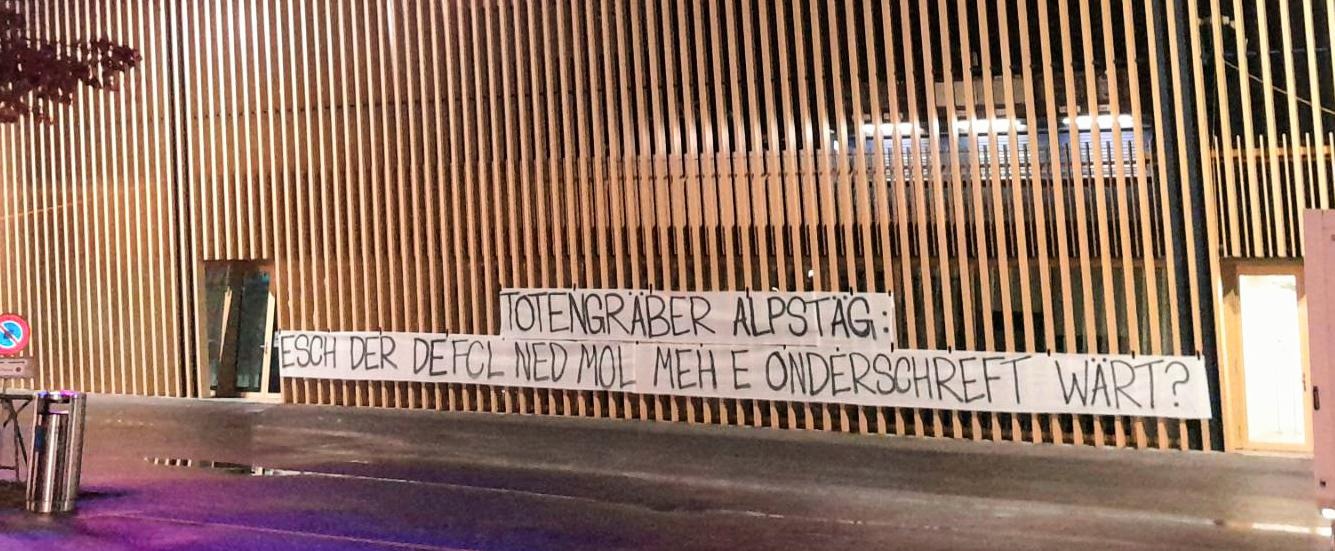 TOTENGRÄBER ALPSTÄG:
ESCH DER DE FCL NED MOL MEH E ONDERSCHREFT WÄRT?